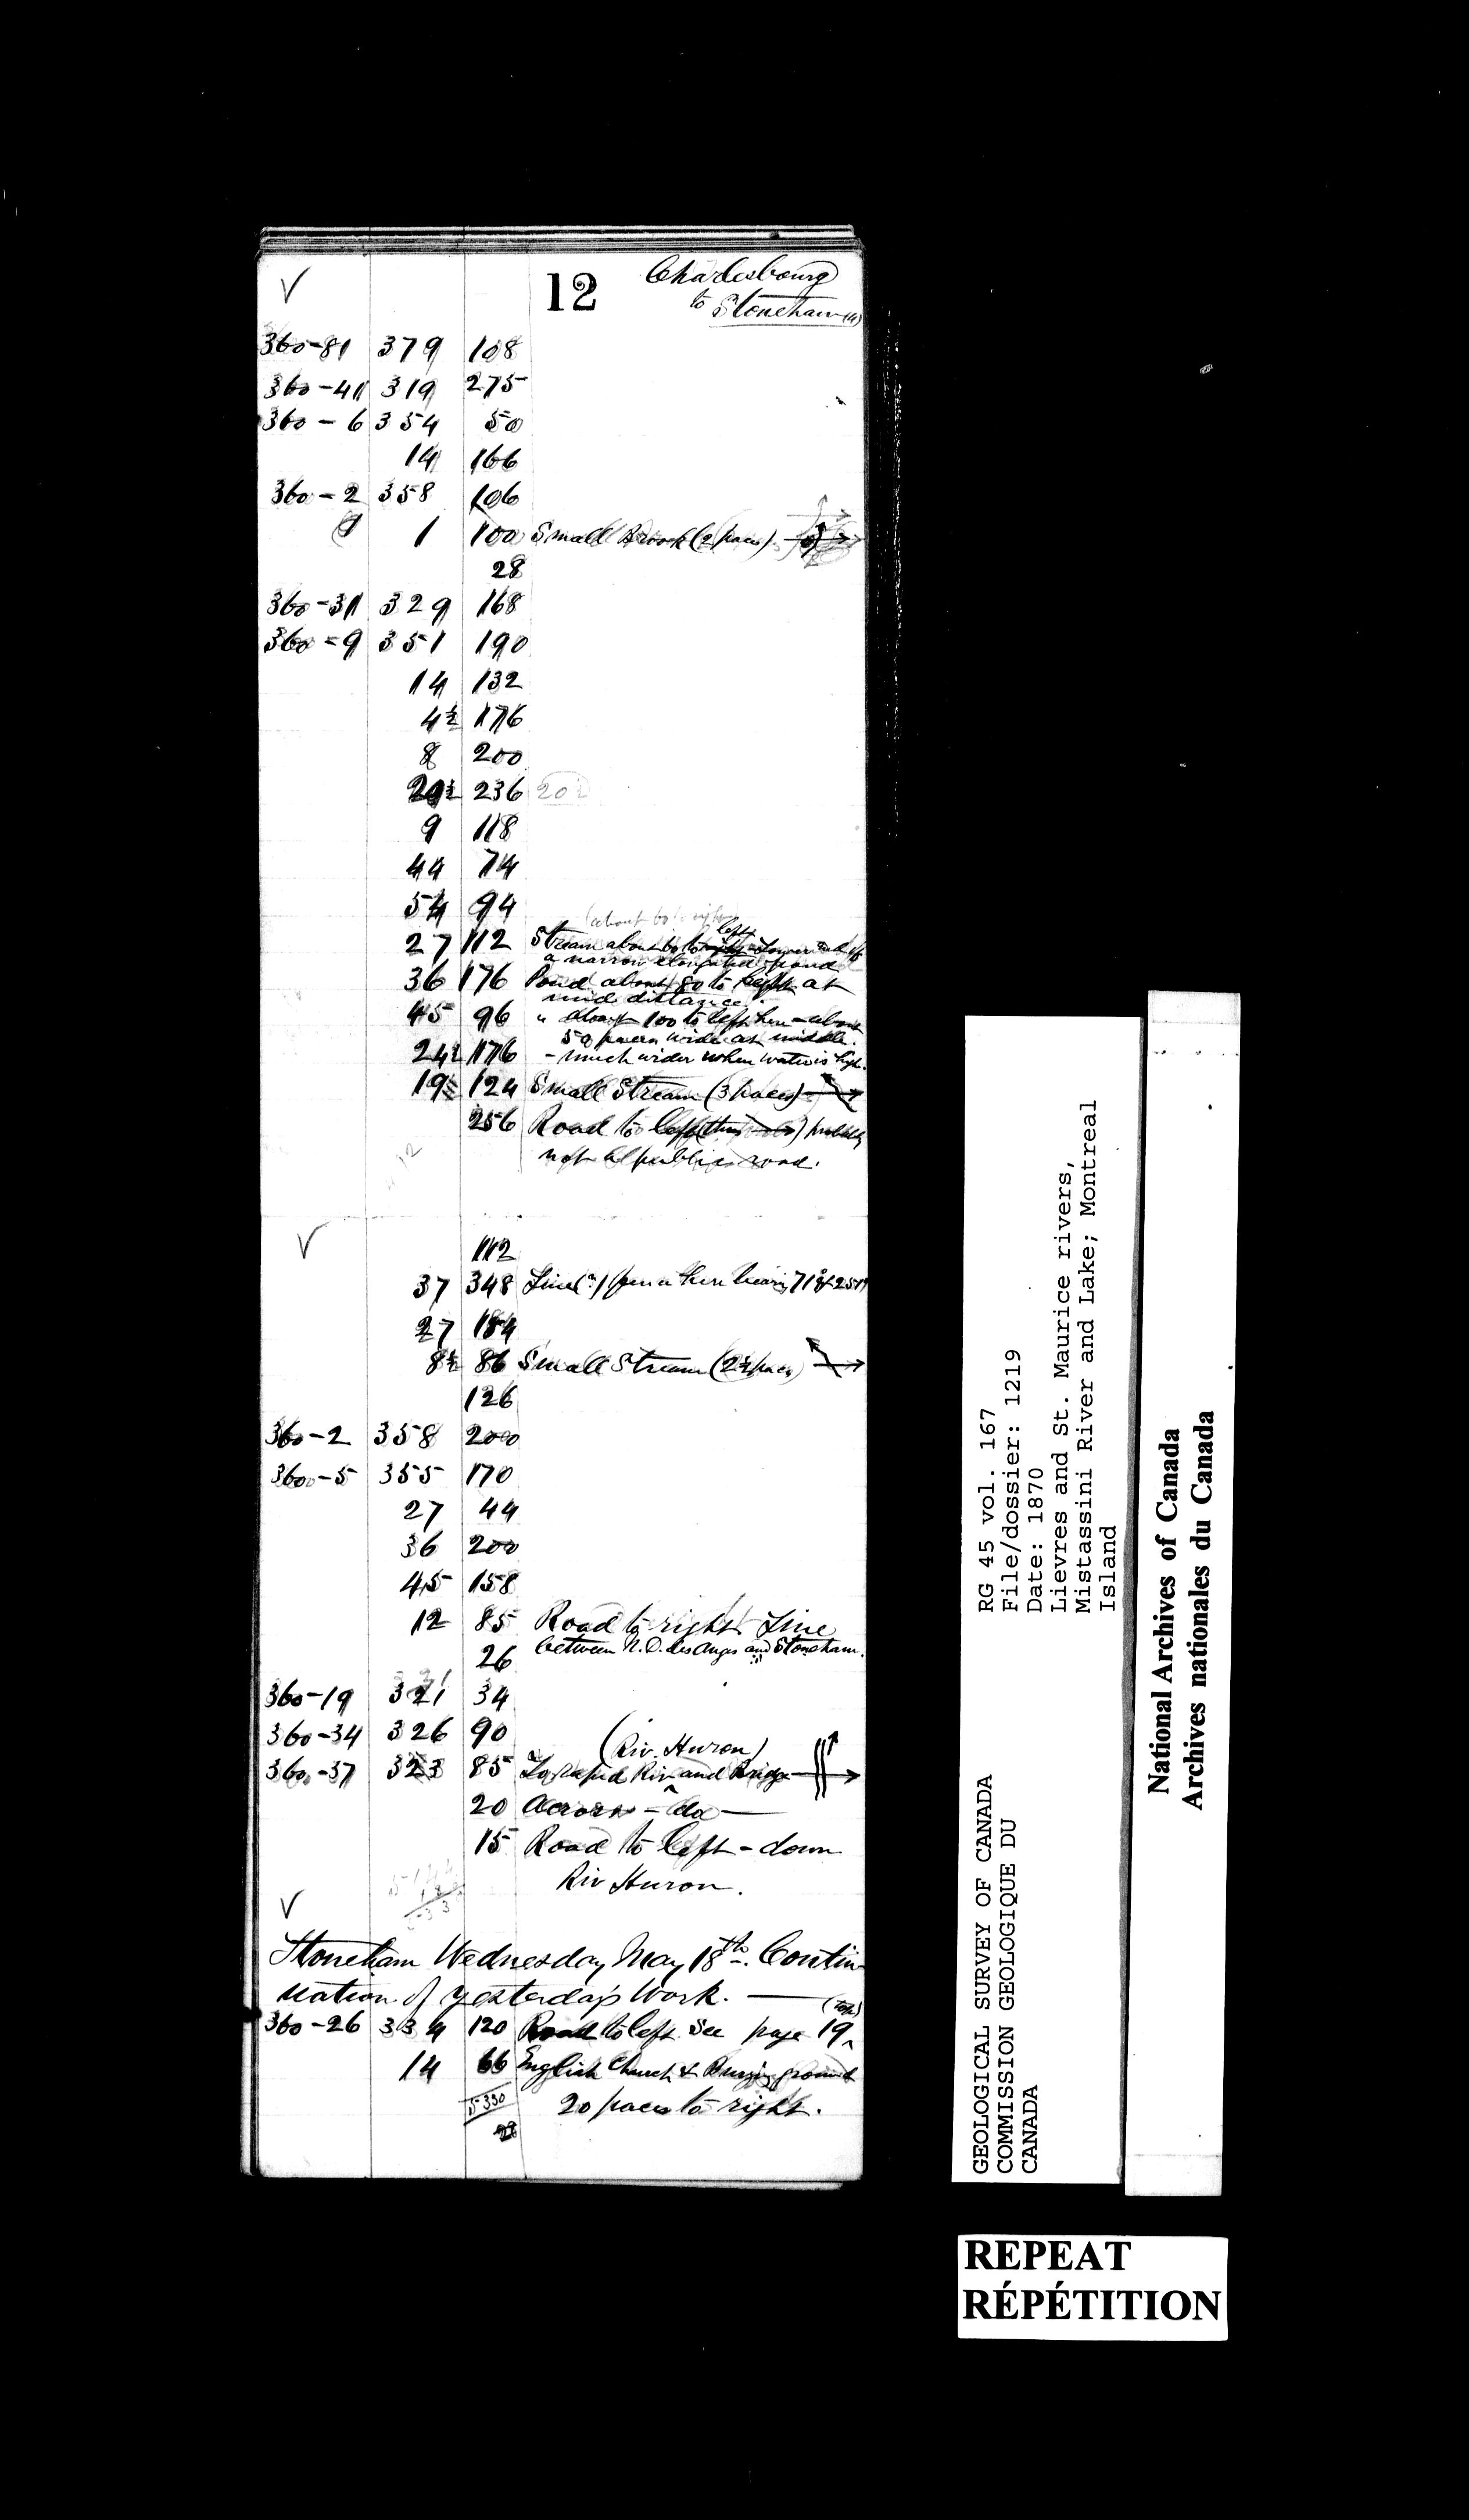 12
Charlesbourg
to Stoneham
360-81 379 108
360-41 319 275
360-6 354 50
14 166
360-2 358 106
1 100 Small Brook (2 paces)
28
360-31 329 168
360-9 351 190
14 132
4½ 176
8 200
20½ 236 20½
9 118
44 74
54 94
(about 60 to right)
27 112 Stream about 60 to right left Lower end of
a narrow elongated pond
36 176 Pond about 80 to left at
mid distance.
45 96 " about 100 to left here - about
50 paces wide at middle.
24½ 176 - much wider when water is high.
19½ 124 Small Stream (3 paces)
256 Road to left (thus) probably
not a public road.
112
37 348 Line(?) fence here bearing 71° & 251°
27 184
8½ 86 Small Stream (2½ paces)
126
360-2 358 200
360-5 355 170
27 44
36 200
45 158
12 85 Road to right Line
26 between N.D. des Anges and Stoneham.
360-19 321 34
360-34 326 90
(Riv. Huron)
360-37 323 85 To rapid Riv and Bridge
20 Across - do
15 Road to left - down
Riv Huron.
Stoneham Wednesday May 18th. Contin-
uation of yesterday's Work.
(top)
360-26 334 120 Road to left See page 19
14 66 English Church & Burying ground
5330 20 paces to right.
28
RG 45 vol. 167
File/dossier: 1219
Date: 1870
Lievres and St. Maurice rivers,
Mistassini River and Lake; Montreal
Island
GEOLOGICAL SURVEY OF CANADA
COMMISSION GEOLOGIQUE DU
CANADA
National Archives of Canada
Archives nationales du Canada
REPEAT
RÉPÉTITION